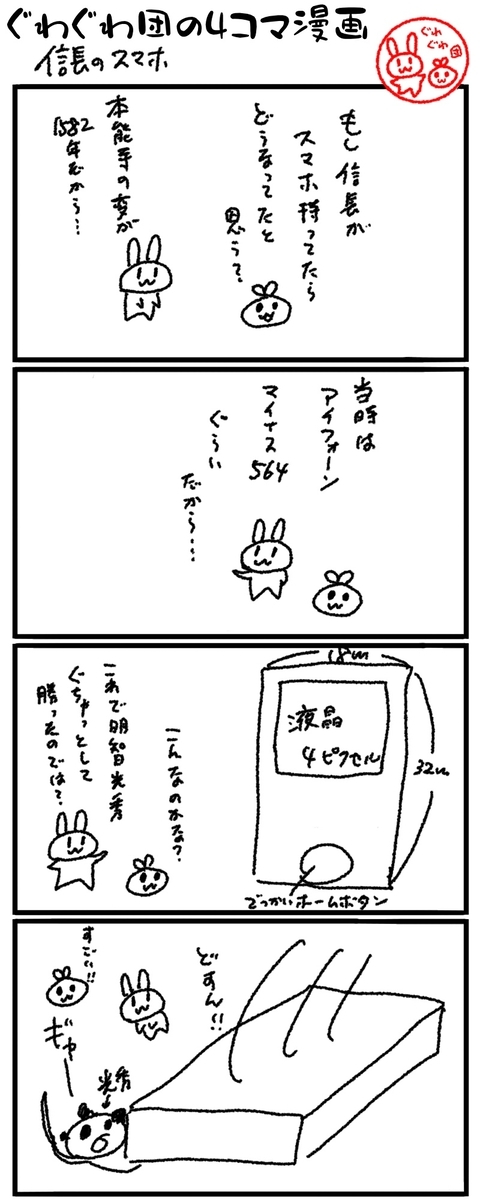 ぐわぐわ団の4コマ漫画
信長のスマホ
ぐわ
ぐわ
団
もし信長が
スマホ持ってたら
どうなってたと
思う?
本能寺の変が
1582
年だから…
当時は
アイフォーン
マイナス
564
ぐらい
だから…
18m
液晶
4ピクセル
32m
でっかいホームボタン
こんなのかな?
これで明智光秀
ぐちゃっとして
勝ったのでは?
どすん!!
すごい!!
ギャー
光秀